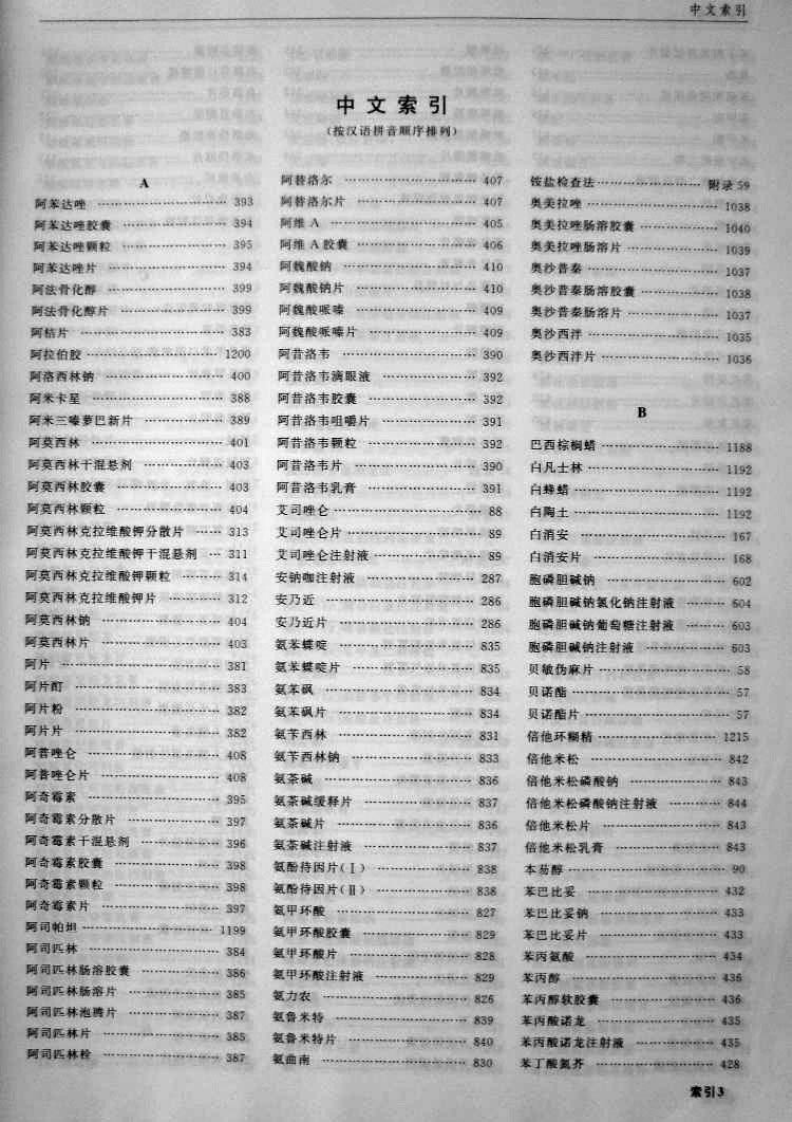 中文索引
中文索引
(按汉语拼音顺序排列)
A
阿苯达唑 …… 393
阿苯达唑胶囊 …… 394
阿苯达唑颗粒 …… 395
阿苯达唑片 …… 394
阿法骨化醇 …… 399
阿法骨化醇片 …… 399
阿桔片 …… 383
阿拉伯胶 …… 1200
阿洛西林钠 …… 400
阿米卡星 …… 388
阿米三嗪萝巴新片 …… 389
阿莫西林 …… 401
阿莫西林干混悬剂 …… 403
阿莫西林胶囊 …… 403
阿莫西林颗粒 …… 404
阿莫西林克拉维酸钾分散片 …… 313
阿莫西林克拉维酸钾干混悬剂 … 311
阿莫西林克拉维酸钾颗粒 …… 314
阿莫西林克拉维酸钾片 …… 312
阿莫西林钠 …… 404
阿莫西林片 …… 403
阿片 …… 381
阿片酊 …… 383
阿片粉 …… 382
阿片片 …… 382
阿普唑仑 …… 408
阿普唑仑片 …… 408
阿奇霉素 …… 395
阿奇霉素分散片 …… 397
阿奇霉素干混悬剂 …… 396
阿奇霉素胶囊 …… 398
阿奇霉素颗粒 …… 398
阿奇霉素片 …… 397
阿司帕坦 …… 1199
阿司匹林 …… 384
阿司匹林肠溶胶囊 …… 386
阿司匹林肠溶片 …… 385
阿司匹林泡腾片 …… 387
阿司匹林片 …… 385
阿司匹林栓 …… 387
阿替洛尔 …… 407
阿替洛尔片 …… 407
阿维A …… 405
阿维A胶囊 …… 406
阿魏酸钠 …… 410
阿魏酸钠片 …… 410
阿魏酸哌嗪 …… 409
阿魏酸哌嗪片 …… 409
阿昔洛韦 …… 390
阿昔洛韦滴眼液 …… 392
阿昔洛韦胶囊 …… 392
阿昔洛韦咀嚼片 …… 391
阿昔洛韦颗粒 …… 392
阿昔洛韦片 …… 390
阿昔洛韦乳膏 …… 391
艾司唑仑 …… 88
艾司唑仑片 …… 89
艾司唑仑注射液 …… 89
安钠咖注射液 …… 287
安乃近 …… 286
安乃近片 …… 286
氨苯蝶啶 …… 835
氨苯蝶啶片 …… 835
氨苯砜 …… 834
氨苯砜片 …… 834
氨苄西林 …… 831
氨苄西林钠 …… 833
氨茶碱 …… 836
氨茶碱缓释片 …… 837
氨茶碱片 …… 836
氨茶碱注射液 …… 837
氨酚待因片(Ⅰ) …… 838
氨酚待因片(Ⅱ) …… 838
氨甲环酸 …… 827
氨甲环酸胶囊 …… 829
氨甲环酸片 …… 828
氨甲环酸注射液 …… 829
氨力农 …… 826
氨鲁米特 …… 839
氨鲁米特片 …… 840
氨曲南 …… 830
铵盐检查法 …… 附录 59
奥美拉唑 …… 1038
奥美拉唑肠溶胶囊 …… 1040
奥美拉唑肠溶片 …… 1039
奥沙普秦 …… 1037
奥沙普秦肠溶胶囊 …… 1038
奥沙普秦肠溶片 …… 1037
奥沙西泮 …… 1035
奥沙西泮片 …… 1036
B
巴西棕榈蜡 …… 1188
白凡士林 …… 1192
白蜂蜡 …… 1192
白陶土 …… 1192
白消安 …… 167
白消安片 …… 168
胞磷胆碱钠 …… 602
胞磷胆碱钠氯化钠注射液 …… 604
胞磷胆碱钠葡萄糖注射液 …… 603
胞磷胆碱钠注射液 …… 603
贝敏伪麻片 …… 58
贝诺酯 …… 57
贝诺酯片 …… 57
倍他环糊精 …… 1215
倍他米松 …… 842
倍他米松磷酸钠 …… 843
倍他米松磷酸钠注射液 …… 844
倍他米松片 …… 843
倍他米松乳膏 …… 843
本芴醇 …… 90
苯巴比妥 …… 432
苯巴比妥钠 …… 433
苯巴比妥片 …… 433
苯丙氨酸 …… 434
苯丙醇 …… 436
苯丙醇软胶囊 …… 436
苯丙酸诺龙 …… 435
苯丙酸诺龙注射液 …… 435
苯丁酸氮芥 …… 428
索引3